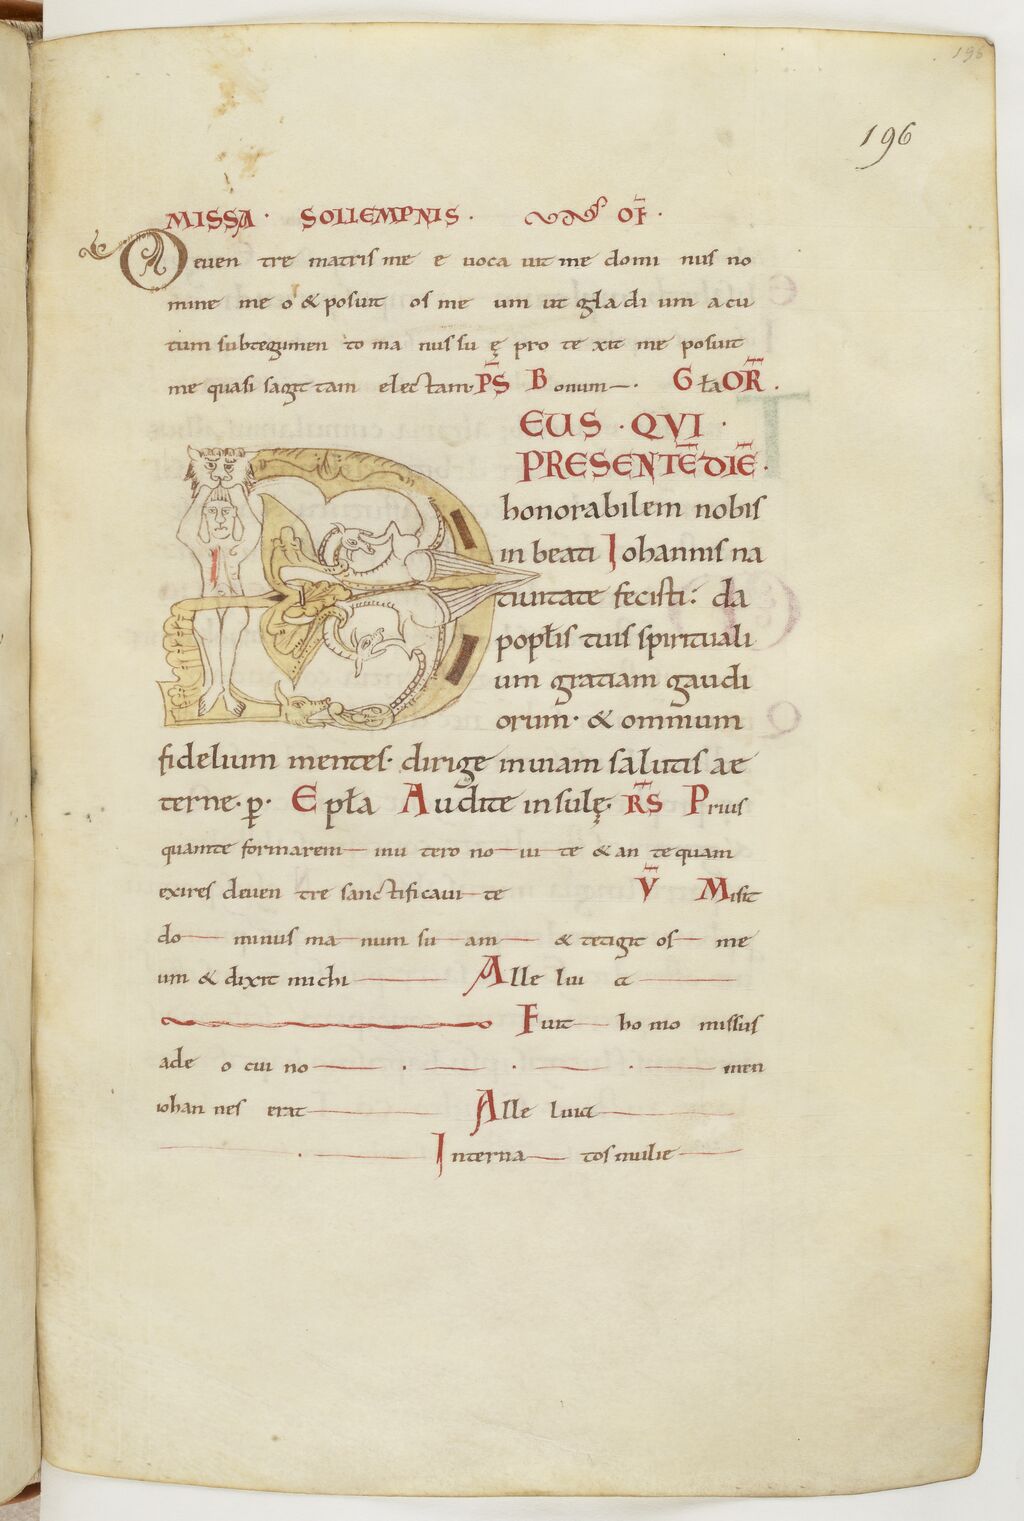 196
196
MISSA · SOLLEMPNIS · OF̄ ·
Deuen tre matris me e uoca uit me domi nus no
mine me o & posuit os me um ut gladi um acu
tum sub tegumen to ma nus su ę pro te xit me posuit
me quasi sagit tam electam· P̄S Bonum—· Gła OR̄ ·
DEUS · QVI ·
PRESENTĒ DIĒ ·
honorabilem nobis
in beati Iohannis na
tiuitate fecisti: da
popłis tuis spirituali
um gratiam gaudi
orum· & omnium
fidelium mentes· dirige inuiam salutis ae
terne· p̱· Epła Audite insulę· R̄S Prius
quamte formarem— inu tero no—ui—te & an te quam
exires deuen tre sanctificaui—te V̄ Misit
do— minus ma—num su—am— & tetigit os— me
um & dixit michi— Alle lui a—
Fuit— ho mo missus
ade o cui no— · — · — · — men
iohan nes erat— Alle luia—
— · — Interna— tos mulie—